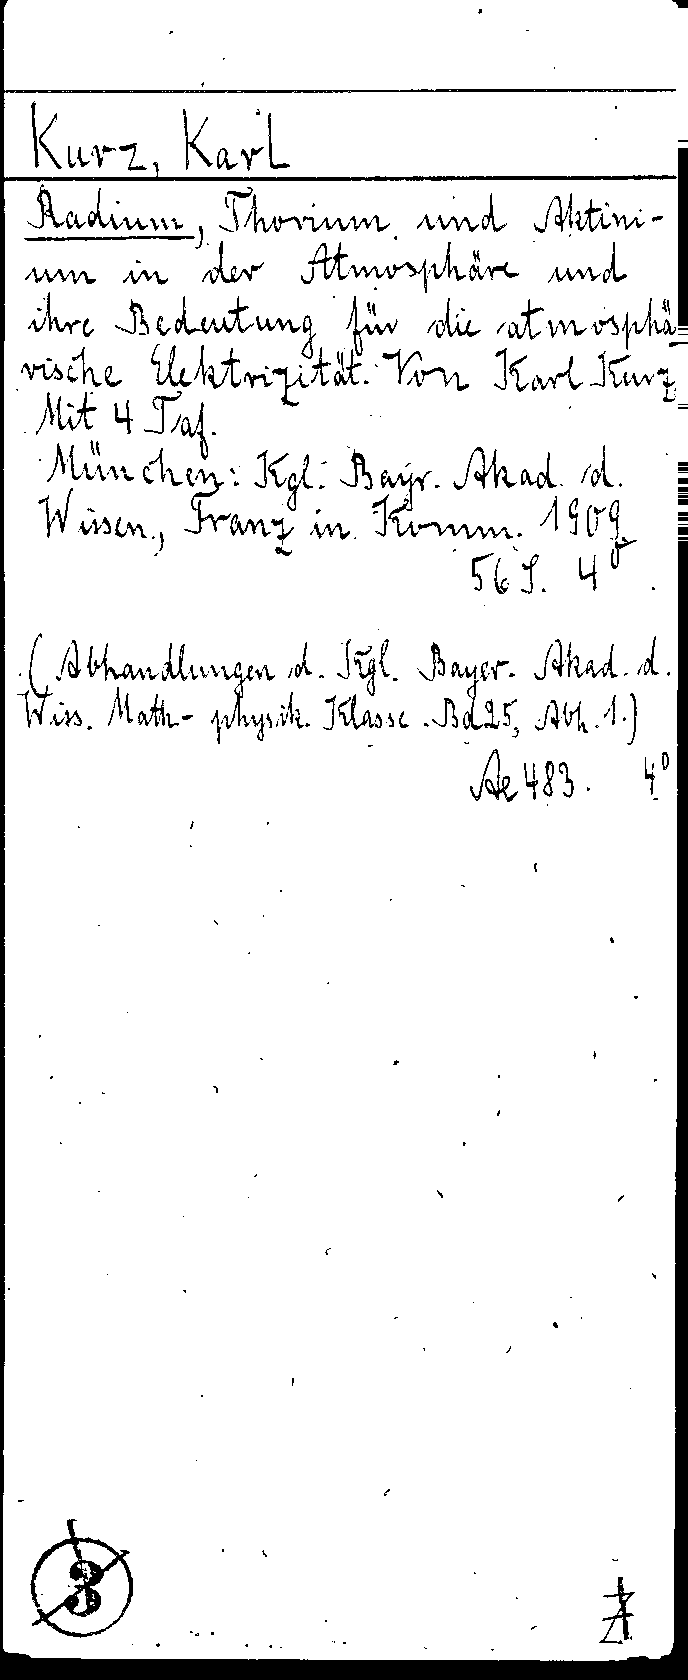 Kurz, Karl
Radium, Thorium und Aktini-
um in der Atmosphäre und
ihre Bedeutung für die atmosphä
rische Elektrizität. Von Karl Kurz
Mit 4 Taf.
München: Kgl. Bayr. Akad. d.
Wissen., Franz in Komm. 1909
56 S. 4°
(Abhandlungen d. Kgl. Bayer. Akad. d.
Wiss. Math-physik. Klasse. Bd 25, Abh. 1.)
Ae 483. 4°
3